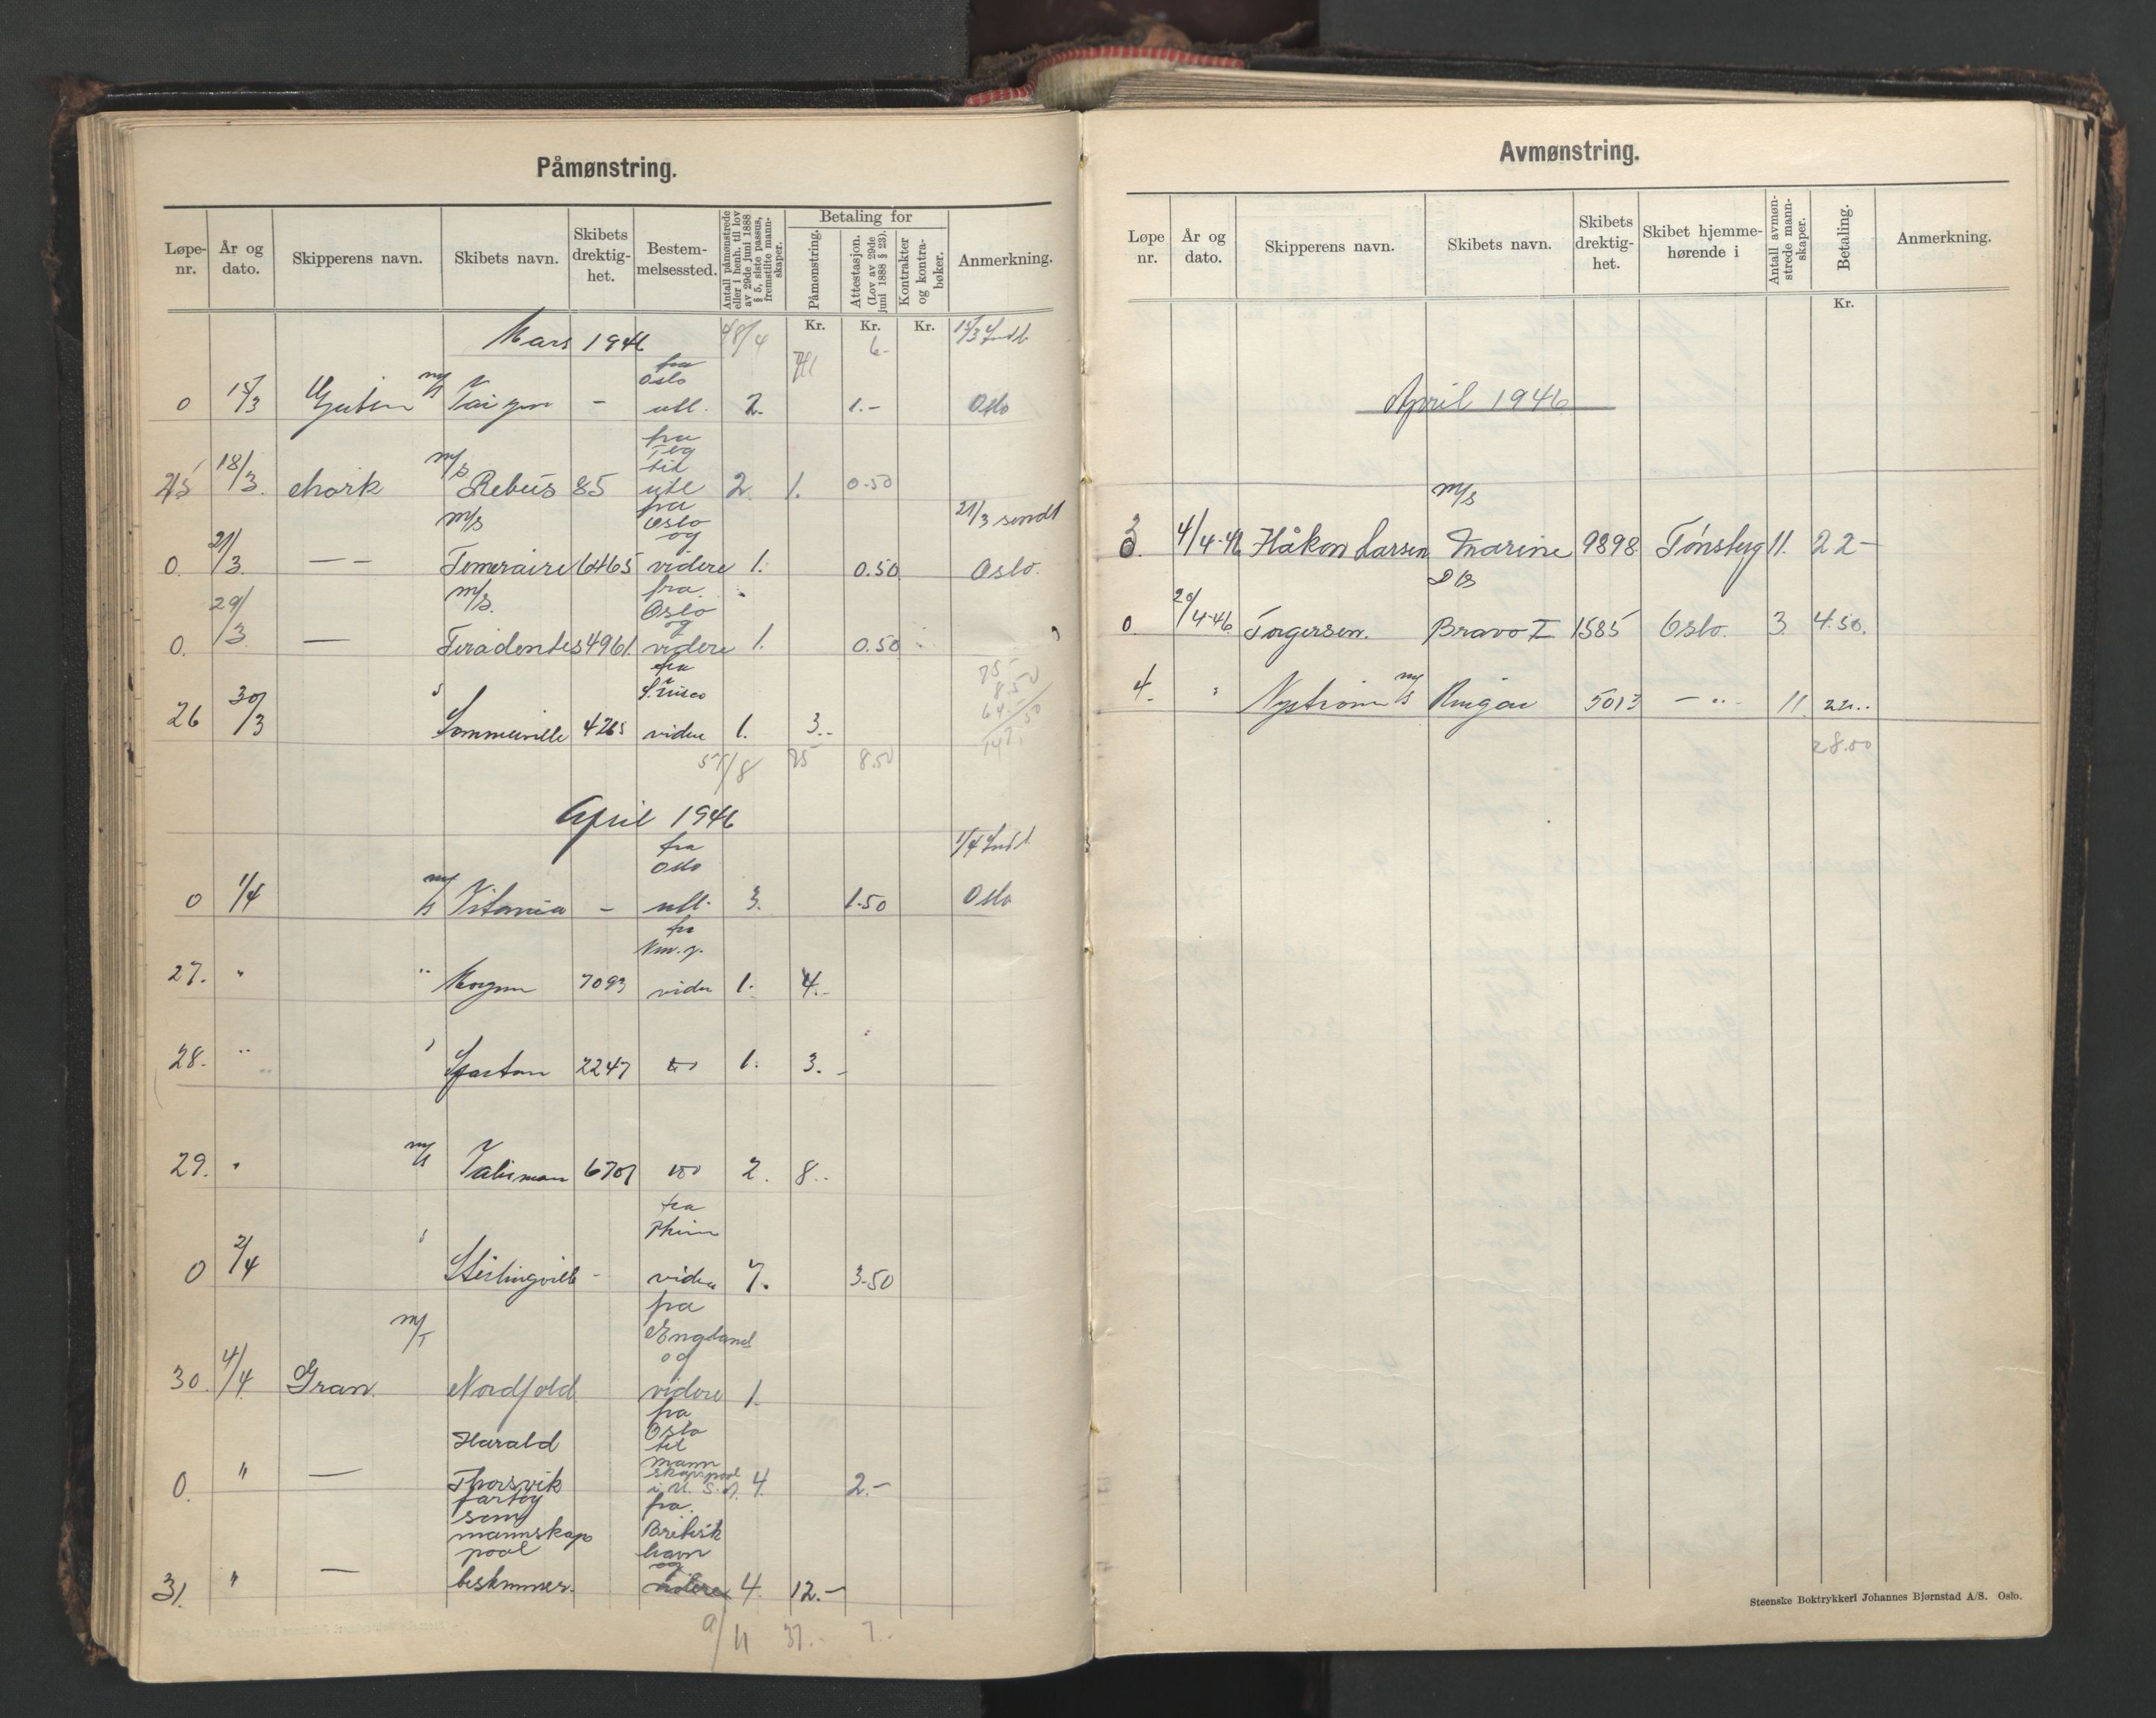 Påmønstring.
Løpe-nr. År og dato. Skipperens navn. Skibets navn. Skibets drektig-het. Bestem-melsessted. Antall påmønstrede eller i henh. til lov av 29de juni 1888 § 5, siste passus, fremstilte mann-skaper. Betaling for Påmønstring. Attestasjon. (Lov av 29de juni 1888 § 23). Kontrakter og kontra-bøker. Anmerkning.
Kr. Kr. Kr.
Mars 1946 48/4 6-
fra
Oslo
0 15/3 m/s - utl. 2. 1.- Oslo
fra
til
25 18/3 Mork m/s Rebus 85 utl 2. 1. 0.50
fra
Oslo
og
21/3 sendt
0. 21/3. — m/s Temeraire 6465 videre 1. 0.50 Oslo.
fra
Oslo
og
0. 29/3 — m/s. Tiradentes 4961. videre 1. 0.50
fra
26 30/3 Sommerville 4265 videre 1. 3.-
57/8 25 8.50
April 1946
fra
Oslo
1/4 Sendt
0 1/4 m/s Titania - utl. 3. 1.50 Oslo
fra
27. " " 7093 videre 1. 4.-
28. " Spartan 2247 1. 3.-
29. " m/s Talisman 6701 2. 8.-
fra
0 2/4 Stirlingville - videre 7. 3.50
fra
England
og
30. 4/4. Gran. m/T Nordfold videre 1.
fra
Oslo
til
mann
skapspool
0. " — Harald Thorsvik i U.S.A. 4. 2.-
fartøy
som
mannskap
pool
fra
Britisk
havn
og
31. " — bestemmer. videre 4. 12.-
9/11 31.- 7.-
Avmønstring.
Løpe nr. År og dato. Skipperens navn. Skibets navn. Skibets drektig-het. Skibet hjemme-hørende i Antall avmøn-strede mann-skaper. Betaling. Anmerkning.
Kr.
April 1946
m/s
3. 4/4-46 Håkon Larsen Marine 9898 Tønsberg 11. 22-
D/S
0. 20/4-46. Torgersen. Bravo I 1585 Oslo. 3. 4.50.
4. " Nystrøm m/s Ringar 5013 — " — 11. 22.-
28.50
Steenske Boktrykkeri Johannes Bjørnstad A/S. Oslo.